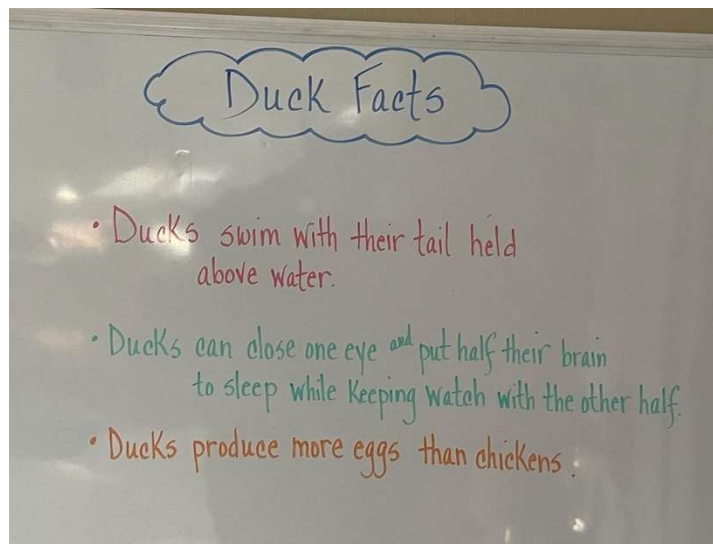 Duck Facts
• Ducks swim with their tail held
above water.
• Ducks can close one eye and put half their brain
to sleep while keeping watch with the other half.
• Ducks produce more eggs than chickens.